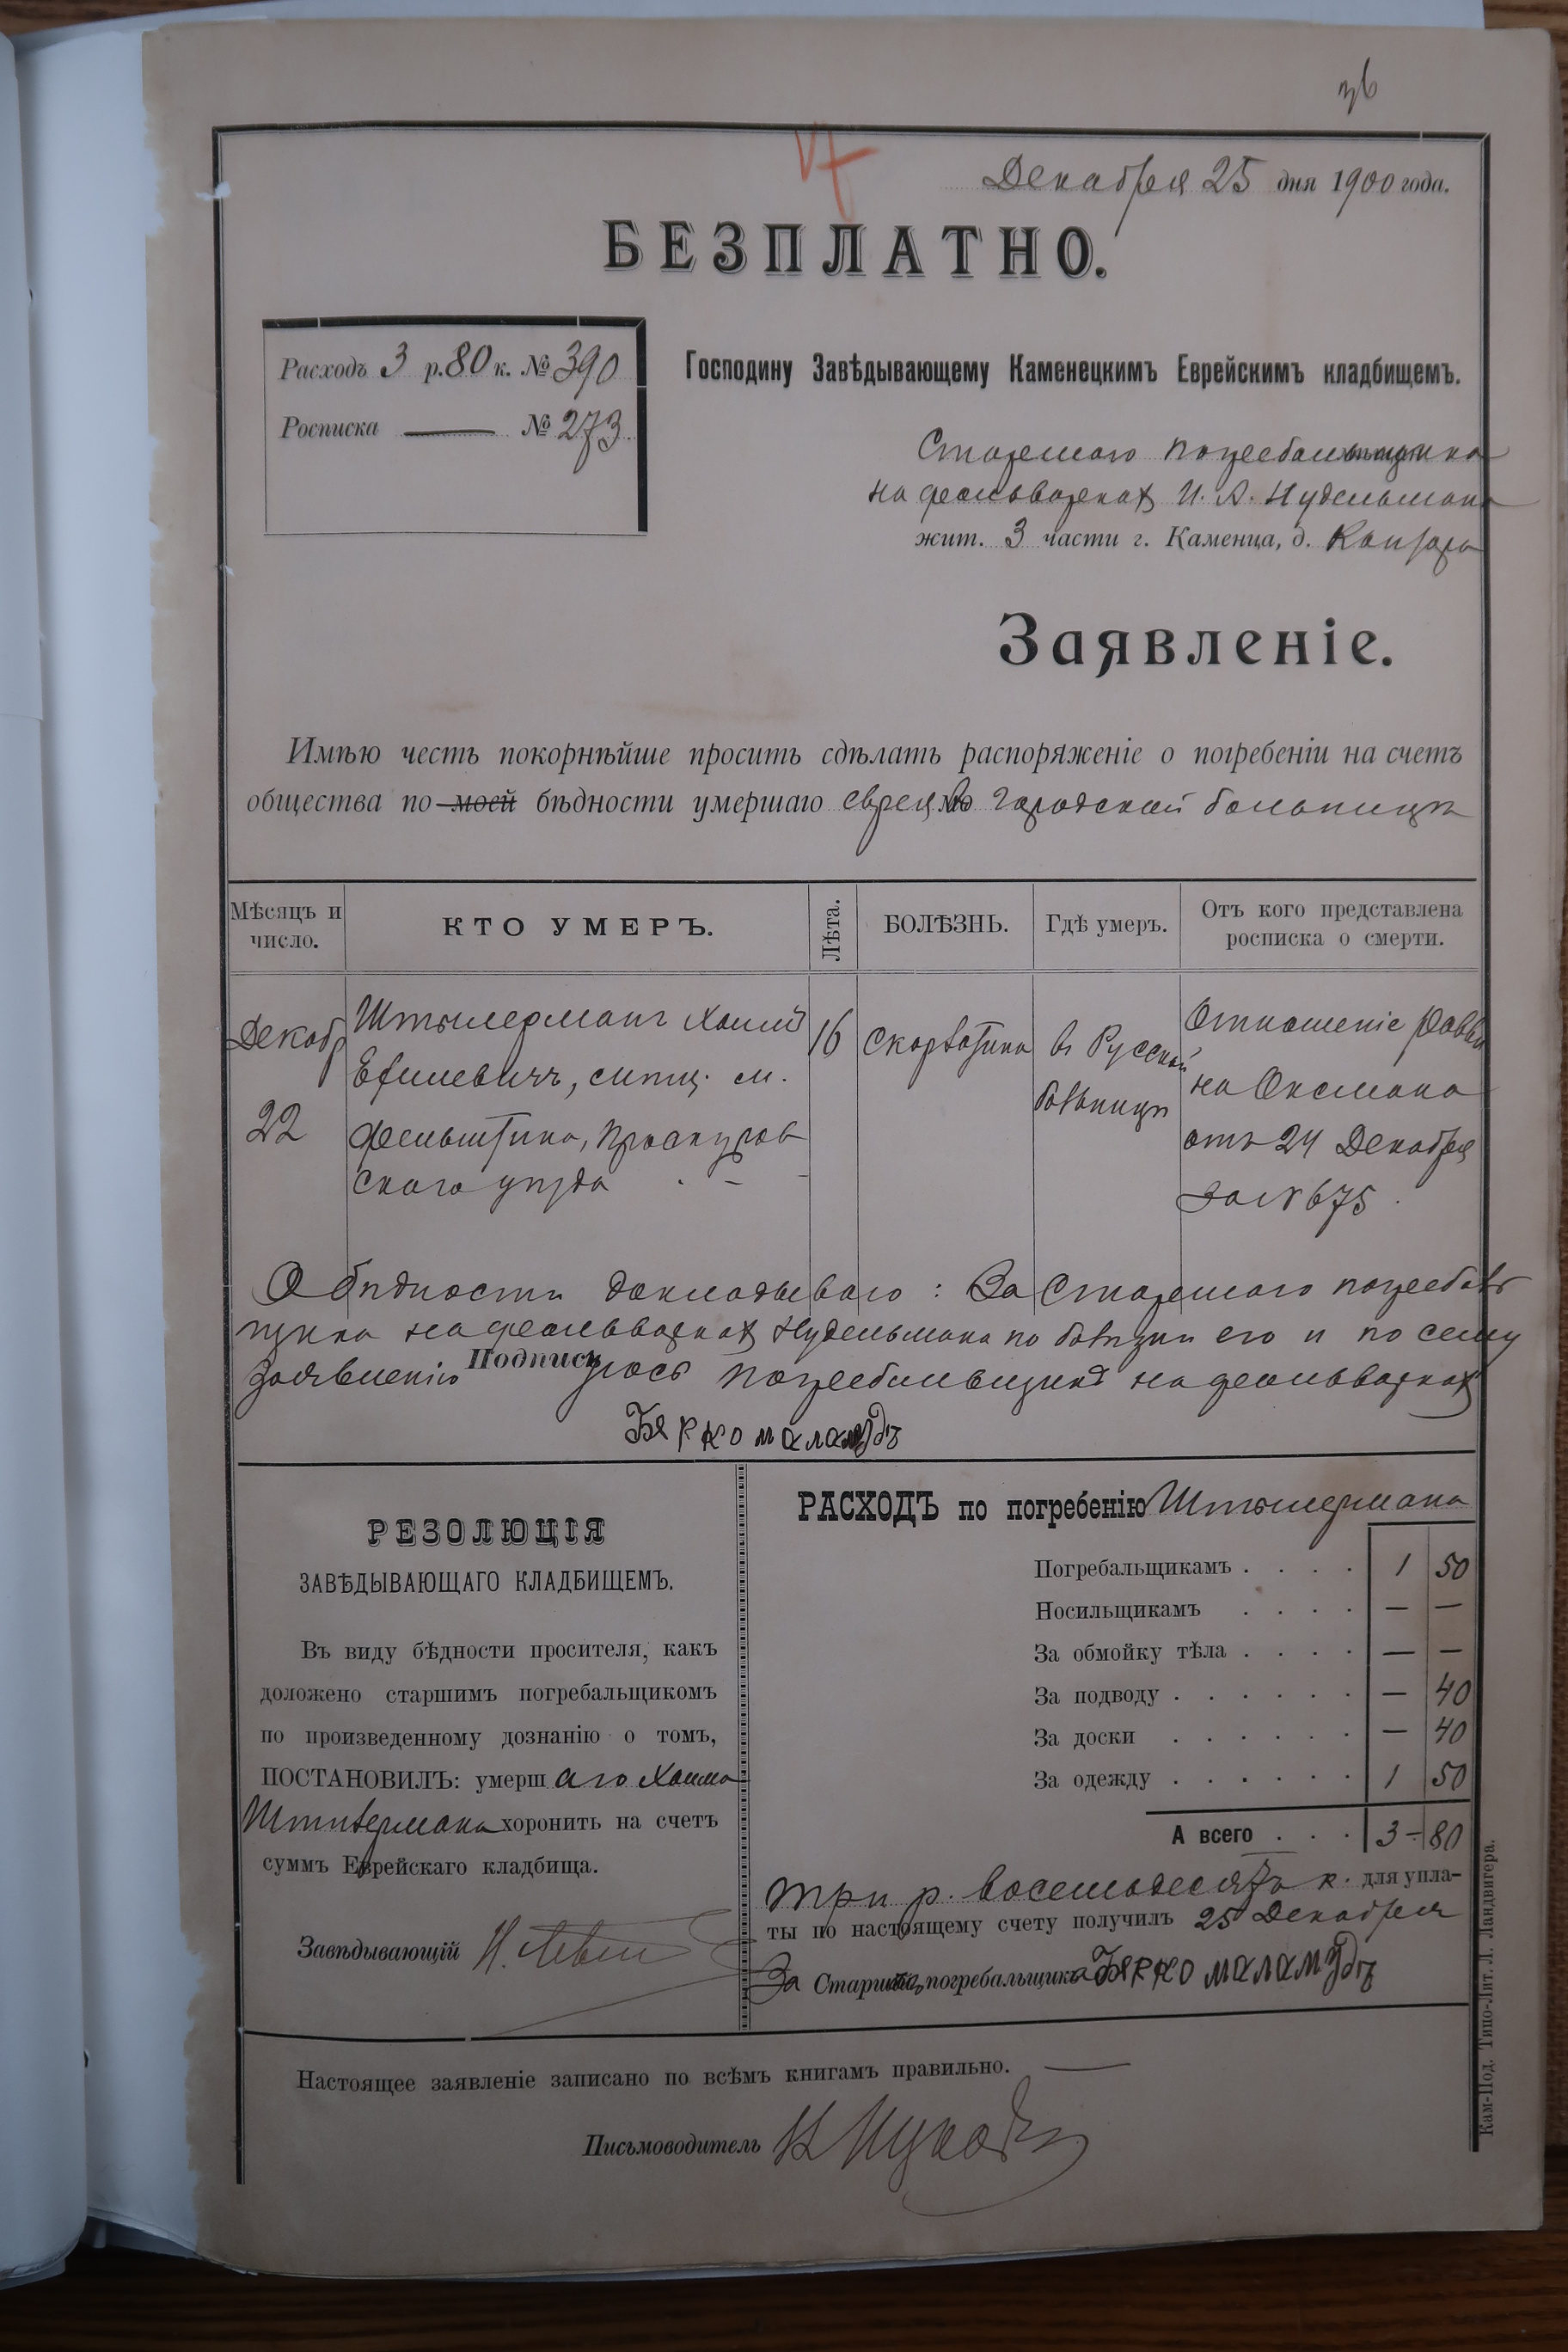 36
Декабря 25 дня 1900 года.
БЕЗПЛАТНО.
Расходъ 3 р. 80 к. № 390
Росписка — № 273
Господину Завѣдывающему Каменецкимъ Еврейскимъ кладбищемъ.
Старшаго погребальщика
на фольваркахъ И. А. Нудельмана
жит. 3 части г. Каменца, д.
Заявленіе.
Имѣю честь покорнѣйше просить сдѣлать распоряженіе о погребеніи на счетъ
общества по моей бѣдности умершаго въ Городской больницѣ
Мѣсяцъ и число.
КТО УМЕРЪ.
Лѣта.
БОЛѢЗНЬ.
Гдѣ умеръ.
Отъ кого представлена росписка о смерти.
Декаб 22
Хаимъ
м.
Фельштина, Проскуров
скаго уѣзда
16
Скарлатина
въ Русской
больницѣ
Отношеніе Равви
на Оксмана
отъ 24 Декабря
за № 675
О бѣдности докладываю: За Старшаго погребаль
щика на фольваркахъ Нудельмана по болѣзни его и по сему
заявленію Подписуюсь погребальщикъ на фольваркахъ
Бярко маламудъ
РЕЗОЛЮЦІЯ
ЗАВѢДЫВАЮЩАГО КЛАДБИЩЕМЪ.
Въ виду бѣдности просителя, какъ
доложено старшимъ погребальщикомъ
по произведенному дознанію о томъ,
ПОСТАНОВИЛЪ: умершаго Хаима
хоронить на счетъ
суммъ Еврейскаго кладбища.
Завѣдывающій
РАСХОДЪ по погребенію Штильермана
Погребальщикамъ . . . . 1 50
Носильщикамъ . . . . — —
За обмойку тѣла . . . . — —
За подводу . . . . . . — 40
За доски . . . . . . — 40
За одежду . . . . . . 1 50
А всего . . . 3 - 80
Три р. восемьдесятъ к. для упла-
ты по настоящему счету получилъ 25 Декабря
За Старшаго погребальщика Бярко маламудъ
Настоящее заявленіе записано по всѣмъ книгамъ правильно. —
Письмоводитель
Кам-Под. Типо-Лит. Л. Ландвигера.